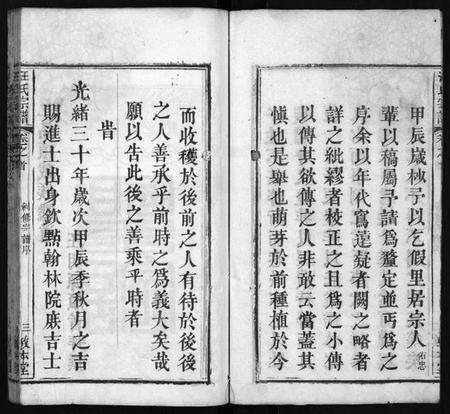 甲辰歲杪予以乞假里居宗人佑忠
輩以稿屬予請爲鑒定並丐爲之
序余以年代寫遠疑者闕之略者
詳之紕繆者校正之且爲之小傳
以傳其欲傳之人非敢云當蓋其
愼也是舉也萌芽於前種植於今
而收穫於後前之人有待於後後
之人善承乎前時之爲義大矣哉
願以告此後之善乘乎時者
旹
光緒三十年歲次甲辰季秋月之吉
賜進士出身欽點翰林院庶吉士
汪氏宗譜
卷之首